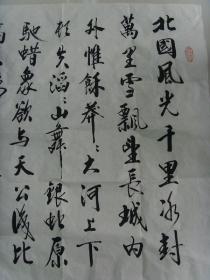 北國風光千里冰封
萬里雪飄望長城内
外惟餘莽〻大河上下
頓失滔〻山舞銀蛇原
馳蜡象欲与天公試比
高